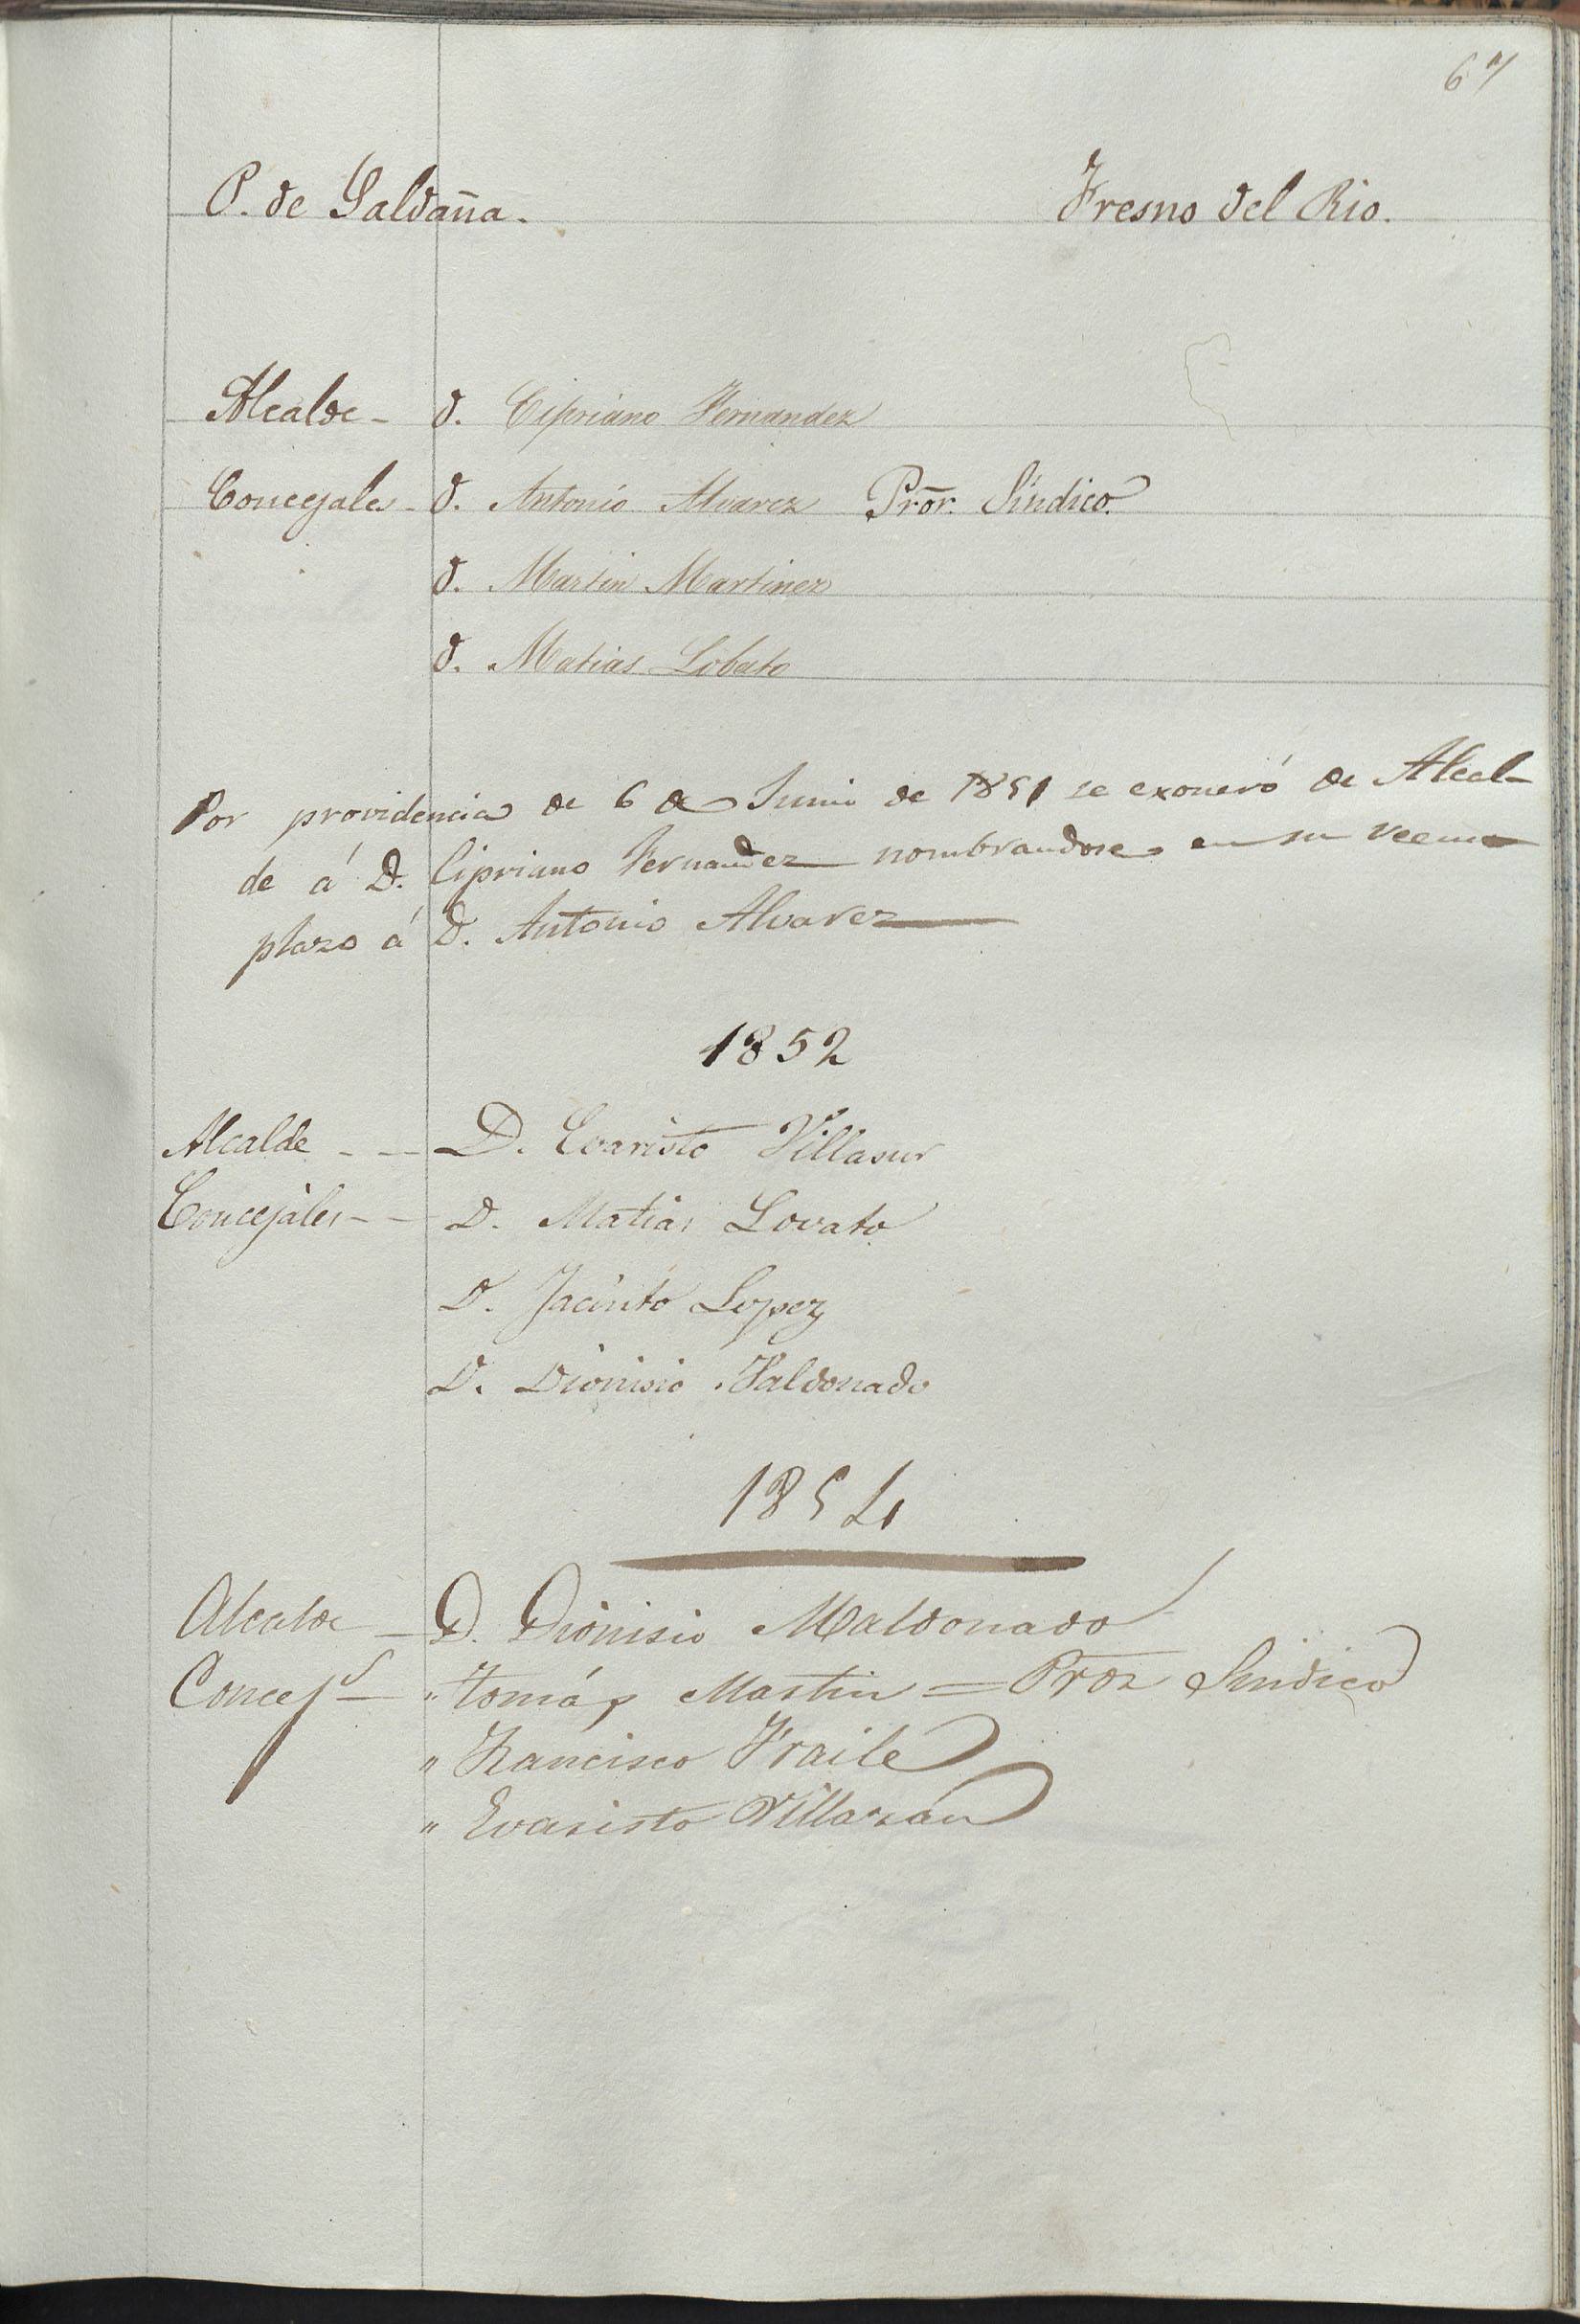 67
P. de Saldaña. Fresno del Rio.
Alcalde - D. Cipriano Fernandez
Concejales - D. Antonio Alvarez Pror. Síndico.
D. Martin Martinez
D. Matias Lobato
Por providencia de 6 de Junio de 1851 se exoneró de Alcal-
de á D. Cipriano Fernandez nombrandose en su reem-
plazo á D. Antonio Alvarez
1852
Alcalde - - D. Evaristo Villasur
Concejales - - D. Matias Lovato
D. Jacinto Lopez
D. Dionisio Maldonado
1854
Alcalde - D. Dionisio Maldonado
Concejs - " Tomás Martin = Pror Sindico
" Francisco Fraile
" Evaristo